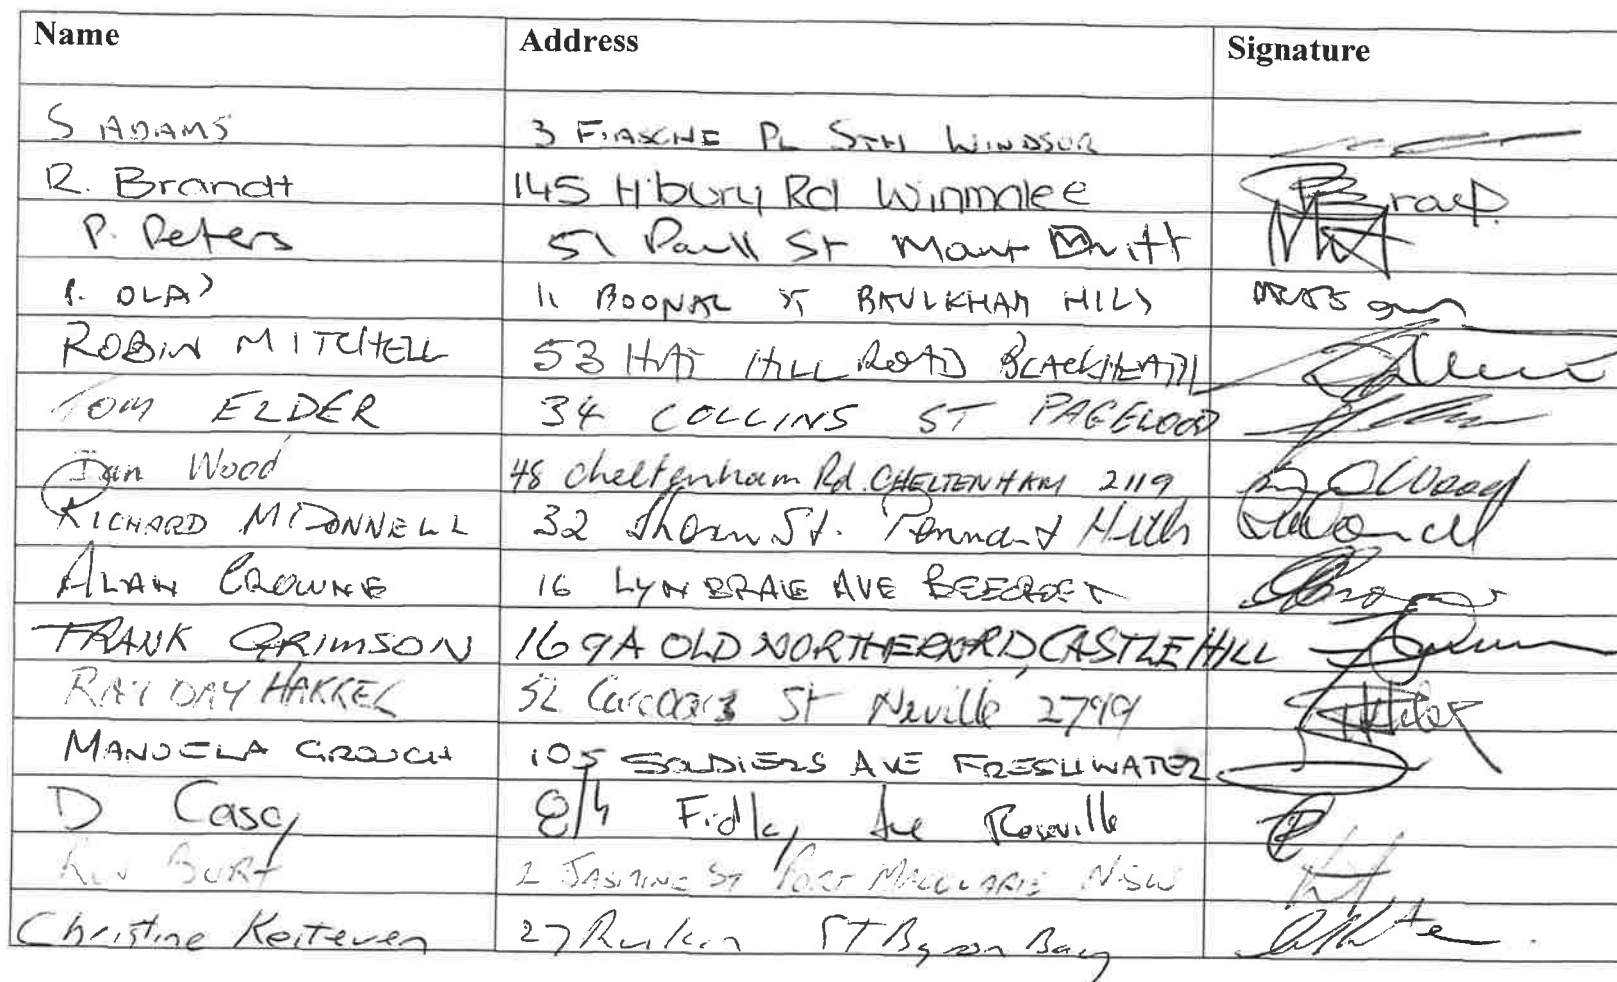 Name Address Signature
S ADAMS 3 FIASCHE PL STH WINDSOR
R. Brandt 145 H'bury Rd Winmalee
P. Peters 51 Paull St Mount Druitt
11 BOONAL ST BAULKHAM HILLS
ROBIN MITCHELL 53 HAT HILL ROAD BLACKHEATH
TOM ELDER 34 COLLINS ST PAGEWOOD
Ian Wood 48 Cheltenham Rd. CHELTENHAM 2119
RICHARD McDONNELL 32 Thorn St. Pennant Hills
ALAN CROWNE 16 LYNBRAE AVE BEECROFT
FRANK GRIMSON 169A OLD NORTHERN RD, CASTLE HILL
RAY DAY HAKKEL 52 Carcoar St Neville 2799
MANUELA CROUCH 105 SOLDIERS AVE FRESHWATER
D Casey 8/4 Ave Roseville
BURT 2 JASMINE ST PORT MACQUARIE NSW
Christine 27 ST Byron Bay